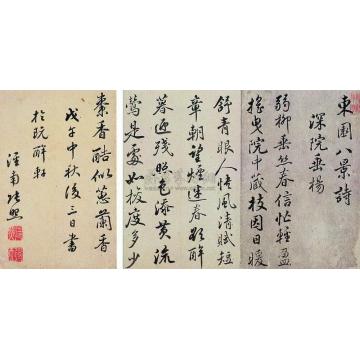 東園八景詩
深院垂楊
弱柳垂絲春信忙輕盈
搖曳院中藏枝因日暖
舒青眼人惜風清賦短
章朝望煙迷春欲醉
暮迎殘照色添黃流
鶯是處如梭度多少
香酷似蕙蘭香
戊午中秋後三日書
於玩醉軒
涇南張照